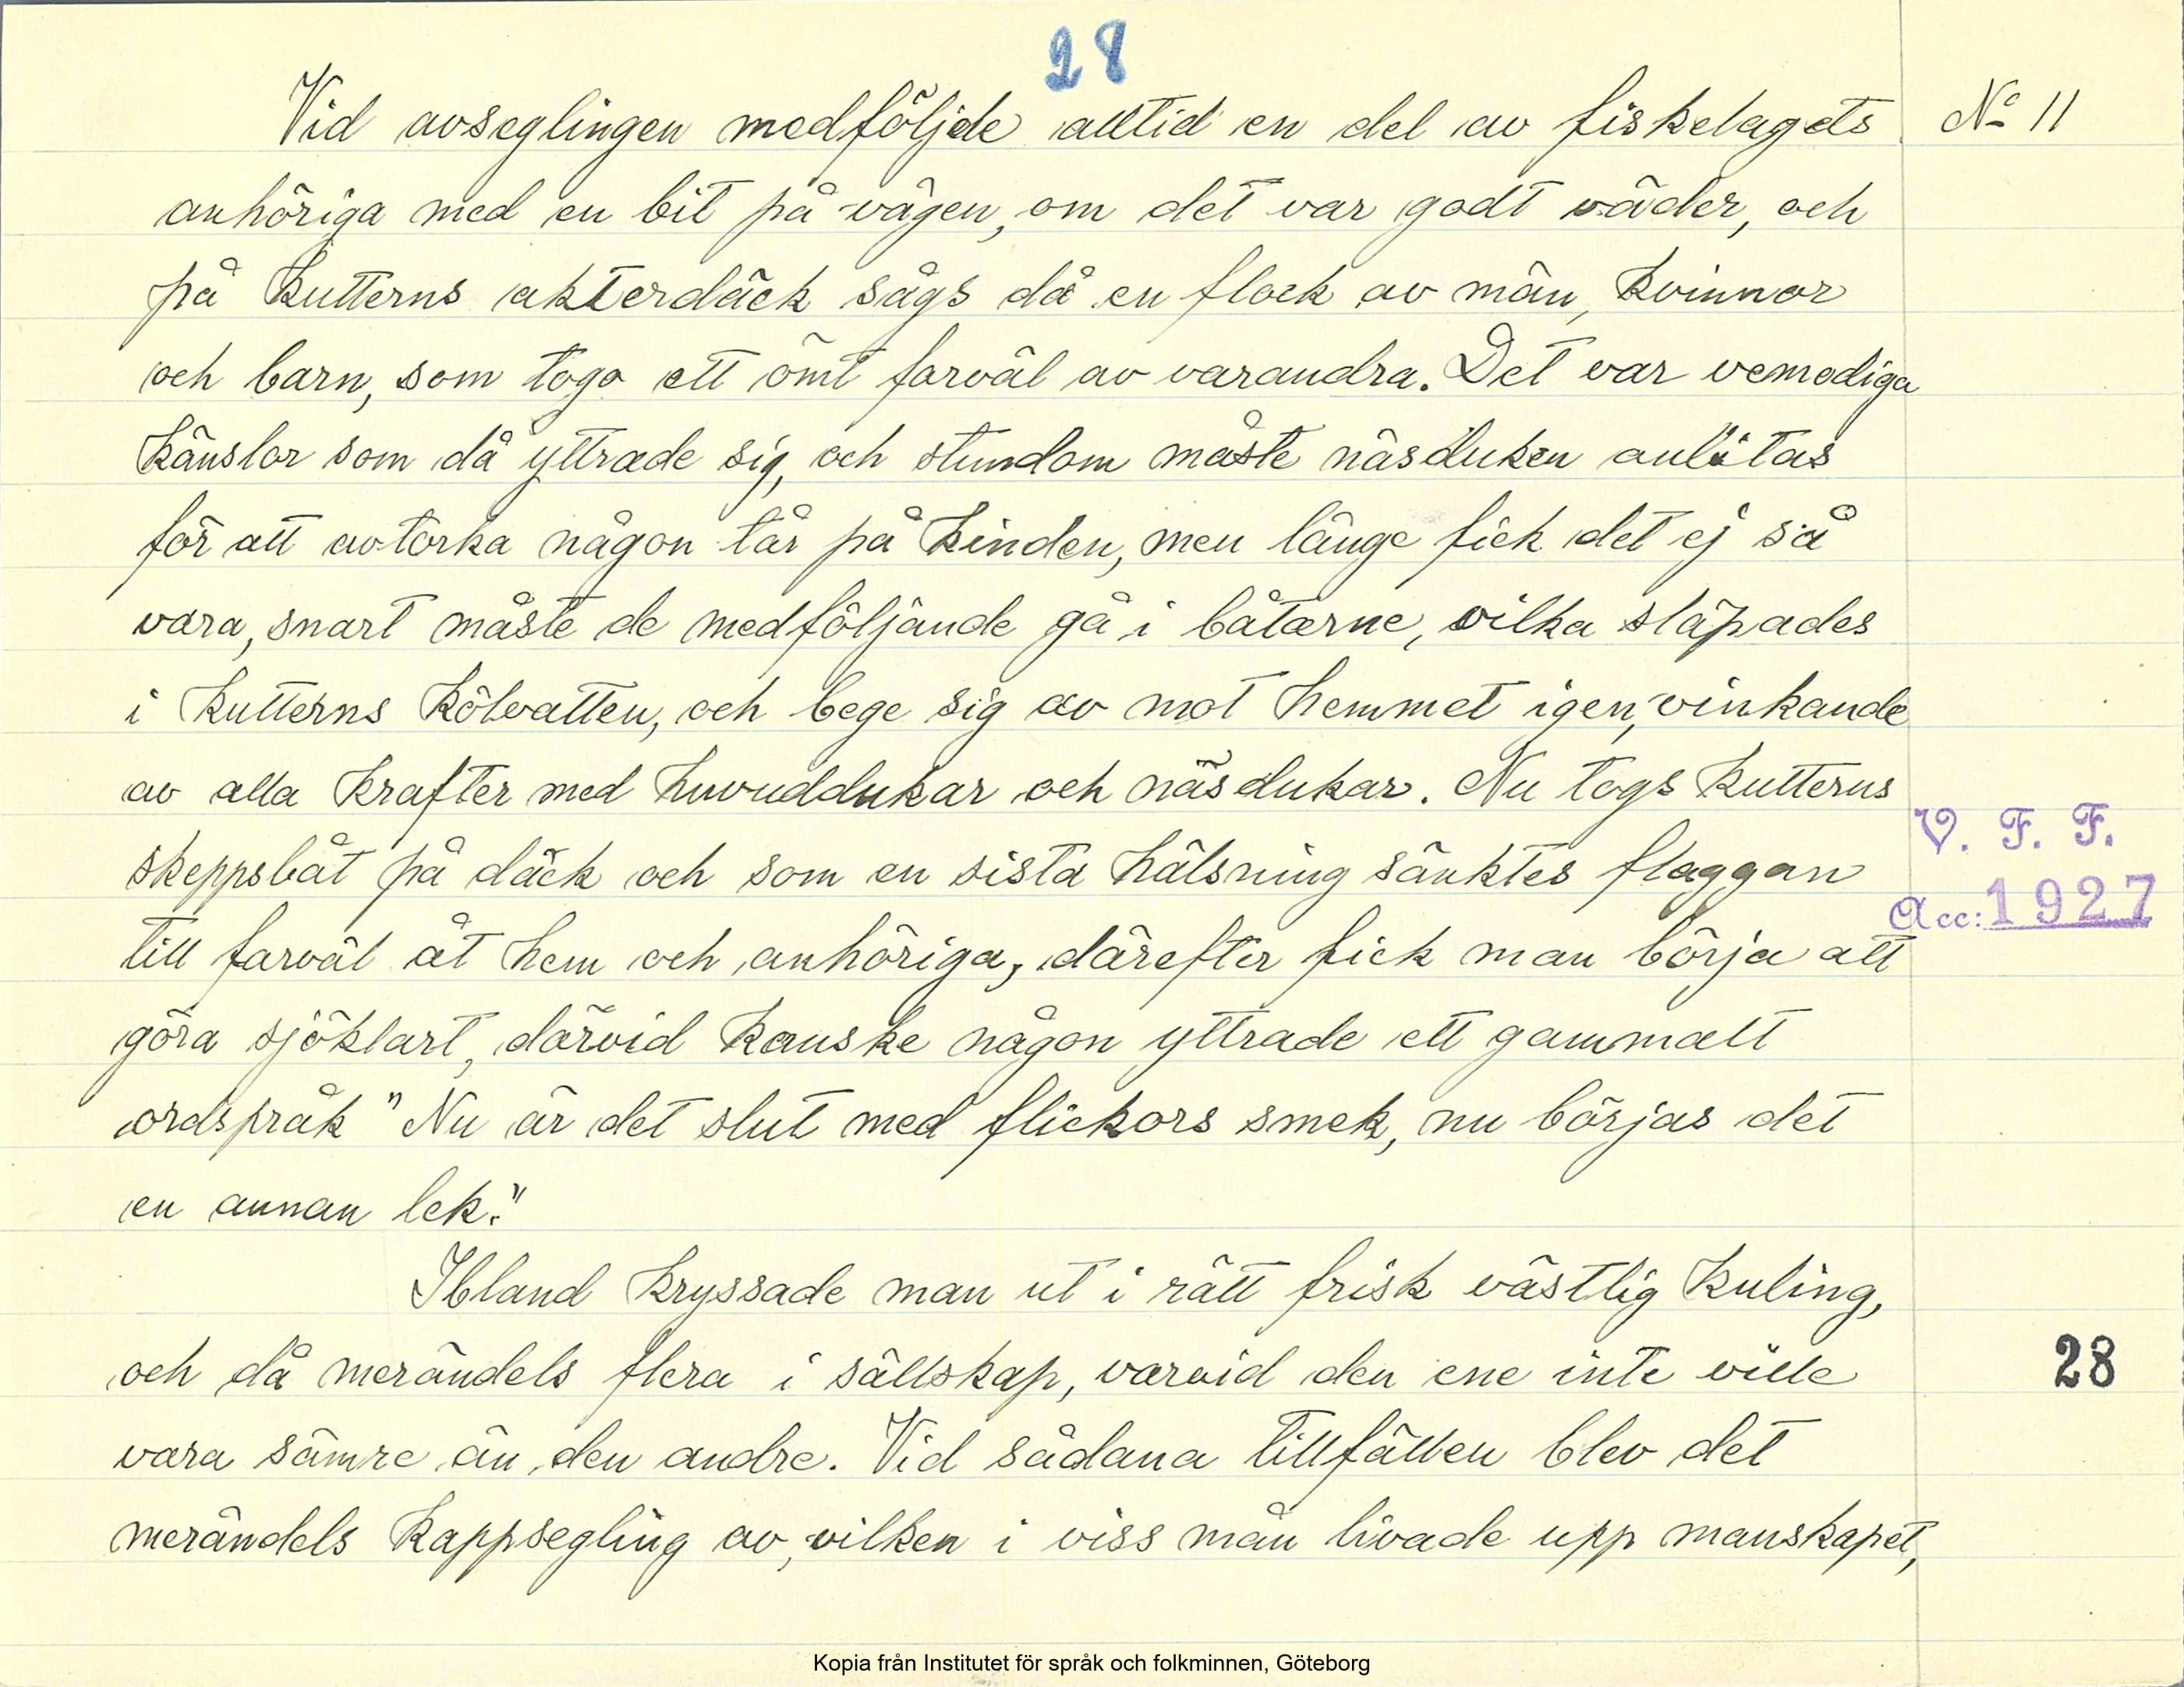 28
Vid avseglingen medföljde alltid en del av fiskelagets
No 11
anhöriga med en bit på vägen, om det var godt väder, och
på kutterns akterdäck sågs då en flock av män, kvinnor
och barn, som togo ett ömt farväl av varandra. Det var vemodiga
känslor som då yttrade sig, och stundom måste näsduken anlitas
för att avtorka någon tår på kinden, men länge fick det ej så
vara, snart måste de medföljande gå i båtarne, vilka släpades
i kutterns kölvatten, och bege sig av mot hemmet igen, vinkande
av alla krafter med huvuddukar och näsdukar. Nu togs kutterns
skeppsbåt på däck och som en sista hälsning sänktes flaggan
V. F. F.
Acc: 1927
till farväl åt hem och anhöriga, därefter fick man börja att
göra sjöklart, därvid kanske någon yttrade ett gammalt
ordspråk "Nu är det slut med flickors smek, nu börjas det
en annan lek."
Ibland kryssade man ut i rätt frisk västlig kuling,
och då merändels flera i sällskap, varvid den ene inte ville
28
vara sämre än den andre. Vid sådana tillfällen blev det
merändels kappsegling av, vilken i viss mån livade upp manskapet,
Kopia från Institutet för språk och folkminnen, Göteborg